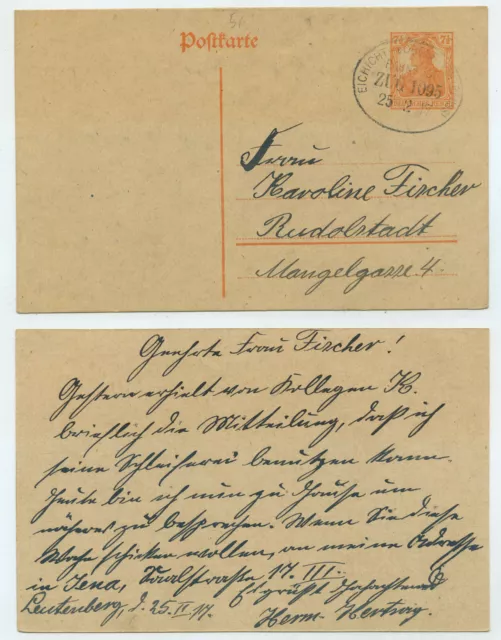 Postkarte
7½ 7½
EICHICHT
ZUG 1095
25 2
Frau
Karoline Fischer
Rudolstadt
Mangelgasse 4.
Geehrte Frau Fischer!
Gestern erhielt von Kollegen K.
brieflich die Mitteilung, daß ich
seine Schleiferei benutzen kann.
Heute bin ich nun zu Hause um
näheres zu besprechen. Wenn Sie diese
Woche schicken wollen, an meine Adresse
in Jena, Saalstrasse 17. III.
Es grüßt Hochachtend
Leutenberg, d. 25. II 17. Herm. Hertwig.